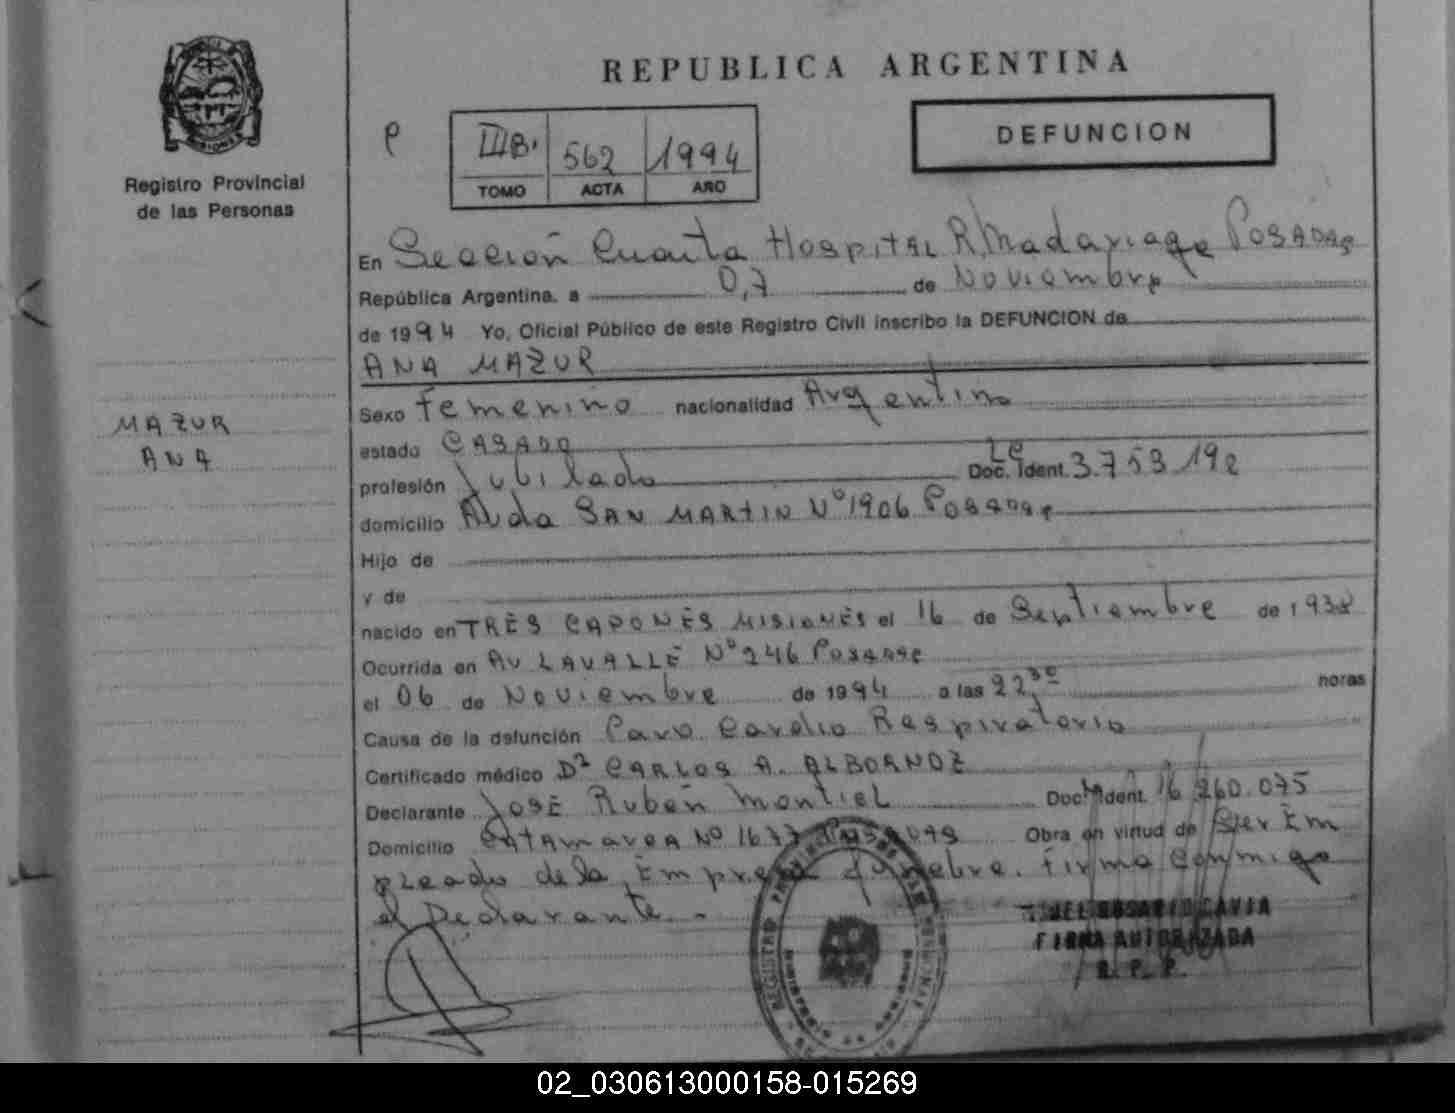 REPUBLICA ARGENTINA
DEFUNCION
IIIB. 562 1994
TOMO ACTA AÑO
MISIONES
Registro Provincial
de las Personas
MAZUR
ANA
En Sección Cuarta Hospital R. Madariaga Posadas
República Argentina. a 07 de Noviembre
de 1994 Yo, Oficial Público de este Registro Civil inscribo la DEFUNCION de
ANA MAZUR
Sexo Femenino nacionalidad Argentina
estado CASADA
profesión Jubilada Doc. Ident. LC 3.753.192
domicilio Avda SAN MARTIN Nº 1906 Posadas
Hijo de
y de
nacido en TRES CAPONES MISIONES el 16 de Septiembre de 1938
Ocurrida en AV LAVALLE Nº 246 Posadas
el 06 de Noviembre de 1994 a las 22,30 horas
Causa de la defunción Paro Cardio Respiratorio
Certificado médico Dr CARLOS A. ALBORNOZ
Declarante José Rubén Montiel Doc. Ident. 16.260.075
Domicilio CATAMARCA Nº 1677 Posadas Obra en virtud de Ser Em
pleado de la Empresa Fúnebre. Firma conmigo
el Declarante.-
REGISTRO PROVINCIAL DE LAS PERSONAS
ROSARIO GAVIA
FIRMA AUTORIZADA
R. P. P.
02_030613000158-015269